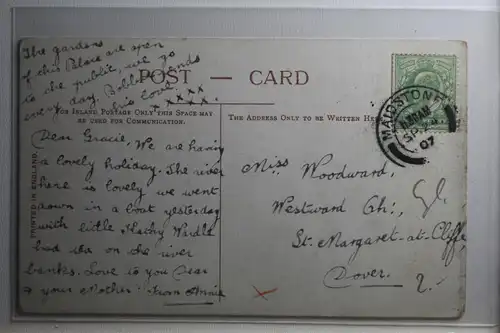 The gardens
of this Place are open
to the public, we go
every day. Bobbie sends
his love.
x x x x
x x x x x
POST — CARD
FOR INLAND POSTAGE ONLY THIS SPACE MAY
BE USED FOR COMMUNICATION.
THE ADDRESS ONLY TO BE WRITTEN HE
PRINTED IN ENGLAND.
Dear Gracie, We are having
a lovely holiday. The river
here is lovely we went
down in a boat yesterday
with little
had tea on the river
banks. Love to you Dear
& your Mother. From Annie
MAIDSTONE
SP
07
Miss Woodward,
Westward Ch:,
St. Margaret-at-Cliffe
Dover.
2.-